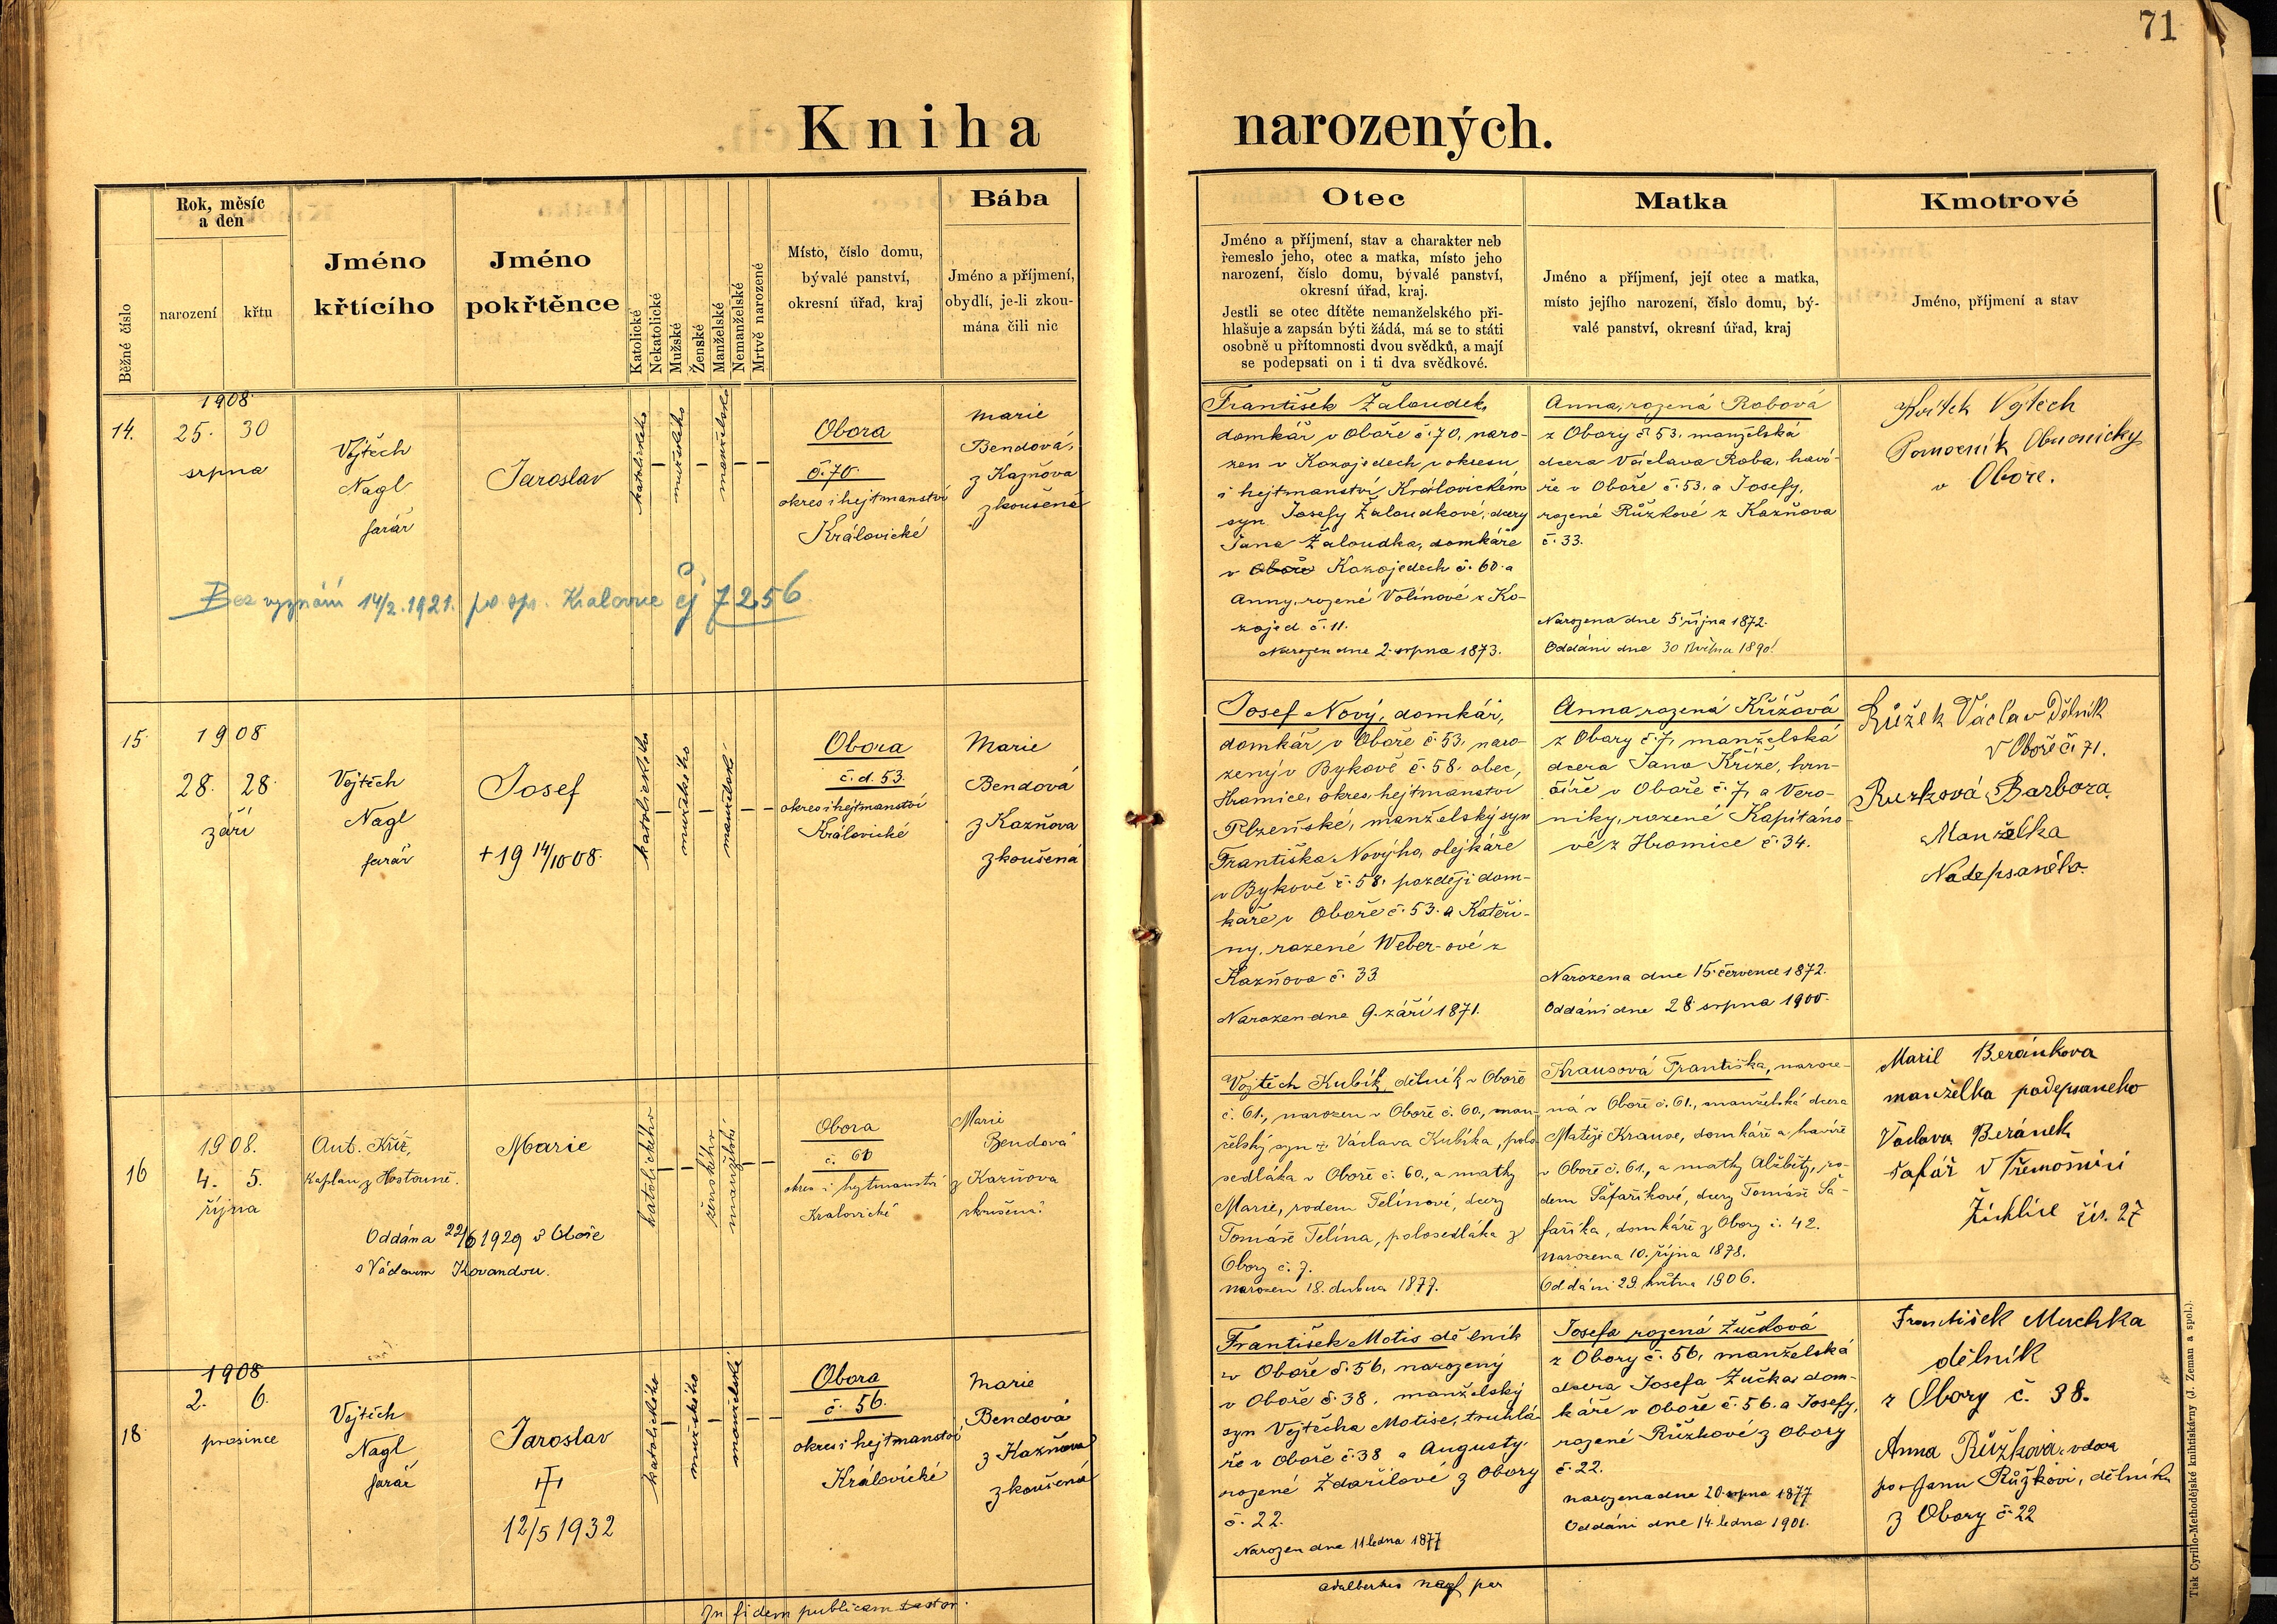 71
Kniha narozených.
Běžné číslo
Rok, měsíc
a den
narození
křtu
Jméno
křtícího
Jméno
pokřtěnce
Katolické
Nekatolické
Mužské
Ženské
Manželské
Nemanželské
Mrtvě narozené
Místo, číslo domu,
bývalé panství,
okresní úřad, kraj
Bába
Jméno a příjmení,
obydlí, je-li zkou-
mána čili nic
Otec
Jméno a příjmení, stav a charakter neb
řemeslo jeho, otec a matka, místo jeho
narození, číslo domu, bývalé panství,
okresní úřad, kraj.
Jestli se otec dítěte nemanželského při-
hlašuje a zapsán býti žádá, má se to státi
osobně u přítomnosti dvou svědků, a mají
se podepsati on i ti dva svědkové.
Matka
Jméno a příjmení, její otec a matka,
místo jejího narození, číslo domu, bý-
valé panství, okresní úřad, kraj
Kmotrové
Jméno, příjmení a stav
14.
1908
25. 30
srpna
Vojtěch
Nagl
farář
Jaroslav
katolického
mužského
manželské
Obora
č. 70.
okres i hejtmanství
Královické
Marie
Bendová,
z Kazňova
zkoušená
Bez vyznání 14/2. 1921. Kralovice čj 7256
František Žaloudek,
domkář v Oboře č. 70, naro-
zen v Kozojedech v okresu
i hejtmanství Královickém
syn Josefy Žaloudkové, dcery
Jana Žaloudka, domkáře
v Oboře Kozojedech č. 60. a
Anny, rozené Volínové z Ko-
zojed č. 11.
Narozen dne 2. srpna 1873.
Anna, rozená Robová
z Obory č. 53. manželská
dcera Václava Roba, haví-
ře v Oboře č. 53. a Josefy,
rozené Růžkové z Kazňova
č. 33.
Narozena dne 5. října 1872.
Oddáni dne 30 května 1890.
Vojtěch
Pomocník
v Obore.
15.
1908
28. 28.
září
Vojtěch
Nagl
farář
Josef
+ 19 14/10 08.
katolického
mužského
manželské
Obora
č. d. 53.
okres i hejtmanství
Královické
Marie
Bendová
z Kazňova
zkoušená
Josef Nový, domkář,
domkář v Oboře č. 53, naro-
zený v Bykově č. 58. obec,
Hromice, okres, hejtmanství
Plzeňské, manželský syn
Františka Nového, olejkáře
v Bykově č. 58, později dom-
káře v Oboře č. 53. a Kateři-
ny, rozené Weber-ové z
Kazňova č. 33.
Narozen dne 9. září 1871.
Anna, rozená Křížová
z Obory č. 7, manželská
dcera Jana Kříže, hrn-
číře v Oboře č. 7, a Vero-
niky, rozené Kapitáno-
vé z Hromice č. 34.
Narozena dne 15. července 1872.
Oddáni dne 28 srpna 1900.
Růžek Václav Dělník
v Oboře č. 71.
Ruzková Barbora
Manželka
Nadepsaného
16
1908.
4. 5.
října
Ant. Kříž,
Kaplan z Hostouně.
Marie
Oddána 22/6 1929 v Oboře
s Václavem Kovandou.
katolického
ženského
manželské
Obora
č. 61
okres i hejtmanství
Kralovické
Marie
Bendová
z Kazňova
zkoušená
Vojtěch Kubík, dělník v Oboře
č. 61., narozen v Oboře č. 60., man-
želský syn + Václava Kubíka, polo
sedláka v Oboře č. 60., a matky
Marie, rodem Telínové, dcery
Tomáše Telína, polosedláka z
Obory č. 7.
narozen 18. dubna 1877.
Krausová Františka, naroze-
ná v Oboře č. 61., manželská dcera
Matěje Krause, domkáře a havíře
v Oboře č. 61., a matky Alžběty, ro-
dem Šafaříkové, dcery Tomáše Ša-
faříka, domkáře z Obory č. 42.
Narozena 10. října 1878.
Oddáni 29 května 1906.
Beránkova
manželka podepsaneho
Václava Beránek
šafář v Třemošnici
Žichlice čís. 27
18.
1908
2. 6.
prosince
Vojtěch
Nagl
farář
Jaroslav
12/5 1932
katolického
mužského
manželské
Obora
č. 56.
okres i hejtmanství
Královické
Marie
Bendová
z Kazňova
zkoušená
František Motis dělník
v Oboře č. 56, narozený
v Oboře č. 38, manželský
syn Vojtěcha Motise, truhlá-
ře v Oboře č. 38 a Augusty,
rozené Zdařilové z Obory
č. 22.
Narozen dne 11 ledna 1877
Josefa rozená Žučková
z Obory č. 56, manželská
dcera Josefa Žučka, dom-
káře v Oboře č. 56. a Josefy,
rozené Růžkové z Obory
č. 22.
narozena dne 20. srpna 1877
Oddáni dne 14. ledna 1901.
František Muchka
dělník
z Obory č. 38.
Anna Růžková, vdova
po Janu Růžkovi, dělníku
z Obory č. 22
In fidem publicam testor.
Adalbertus Nagl par
Tisk Cyrillo-Methodějské knihtiskárny (J. Zeman a spol.).